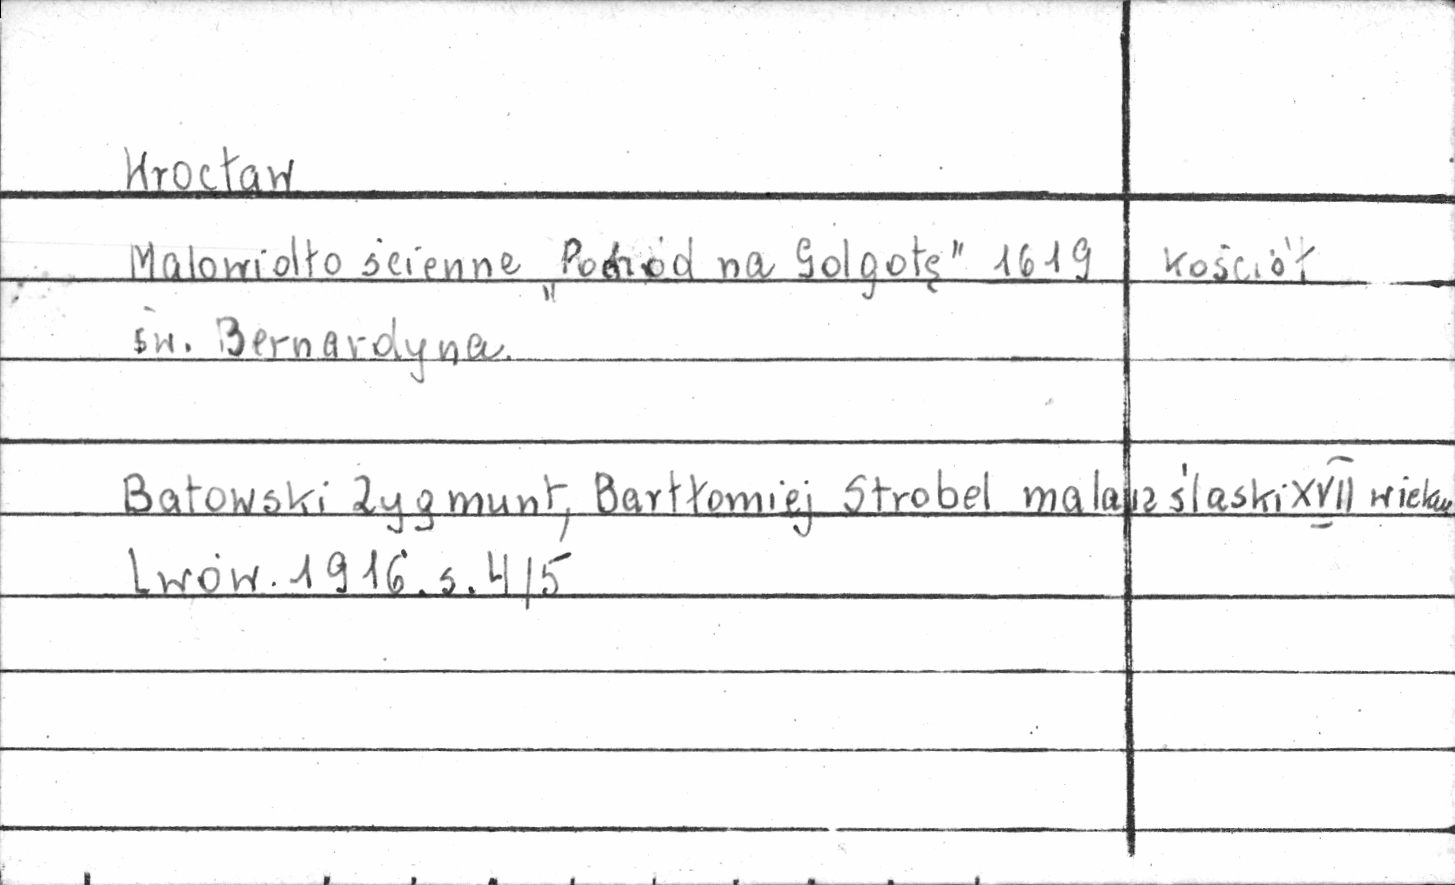 Wrocław
Malowidło ścienne „Pochód na Golgotę" 1619 Kościół
św. Bernardyna.
Batowski Zygmunt, Bartłomiej Strobel malarz śląski XVII wieku
Lwów. 1916. s. 4/5